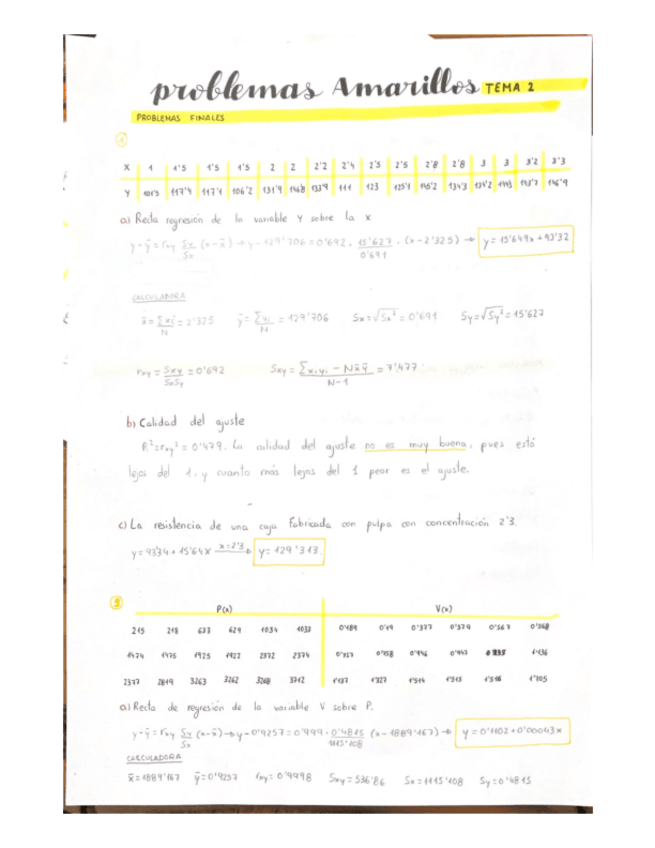 problemas Amarillos TEMA 2
PROBLEMAS FINALES
1
X 1 1'5 1'5 1'5 2 2 2'2 2'4 2'5 2'5 2'8 2'8 3 3 3'2 3'3
Y 101'5 117'4 117'1 106'2 131'9 146'8 133'9 111 123 125'1 145'2 134'3 143'7 146'9
a) Recta regresión de la variable Y sobre la x
y-ȳ = rxy Sy/Sx (x-x̄) → y-129'706 = 0'692 · 15'627/0'691 · (x-2'325) → y = 15'649x + 93'32
CALCULADORA
x̄ = Σxi/N = 2'325 ȳ = Σyi/N = 129'706 Sx = √Sx² = 0'691 Sy = √Sy² = 15'627
rxy = Sxy/SxSy = 0'692 Sxy = Σxiyi - Nx̄ȳ/N-1 = 7'477
b) Calidad del ajuste
R² = rxy² = 0'479. La calidad del ajuste no es muy buena, pues está
lejos del 1, y cuanto más lejos del 1 peor es el ajuste.
c) La resistencia de una caja fabricada con pulpa con concentración 2'3.
y = 93'34 + 15'64x x=2'3 → y = 129'313.
P(x) V(x)
215 218 633 629 1034 1033 0'189 0'19 0'377 0'374 0'567 0'568
1474 1475 1925 1922 2372 2374 0'757 0'758 0'946 1'136
2377 2819 3263 3262 3208 3712 1'137 1'327 1'514 1'513 1'705
a) Recta de regresión de la variable V sobre P.
y-ȳ = rxy Sy/Sx (x-x̄) → y-0'9257 = 0'999 · 0'4815/1115'108 (x-1889'167) → y = 0'1102 + 0'00043x
CALCULADORA
x̄ = 1889'167 ȳ = 0'9257 rxy = 0'9998 Sxy = 536'86 Sx = 1115'108 Sy = 0'4815